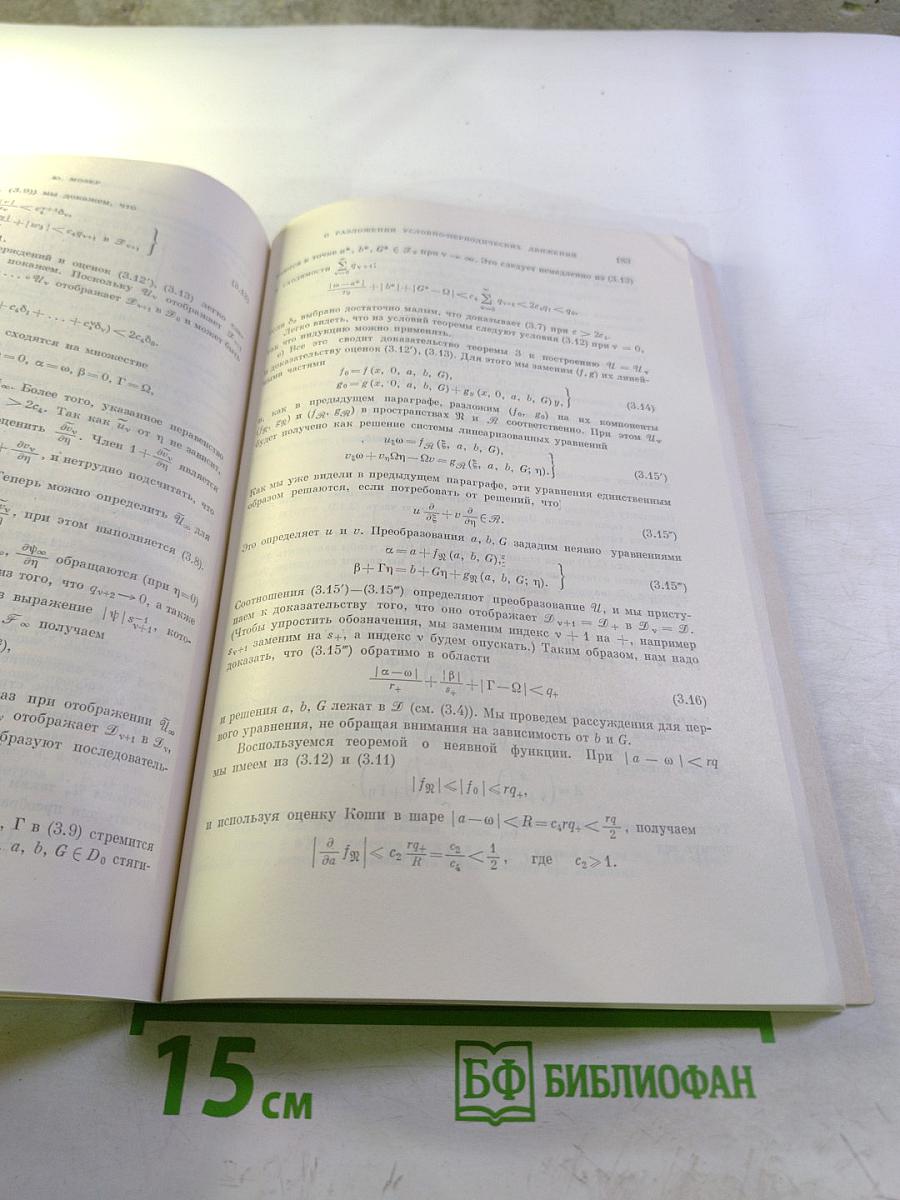 Ю. МОЗЕР
(3.9)) мы докажем, что
рждений и оценок (3.12'), (3.13) легко
покажем. Поскольку 𝒰_ν отображает
отображает 𝒟_{ν+1} в 𝒟_0 и может быть
+c_4δ_1+...+c_4^νδ_ν)<2c_4δ_0.
сходятся на множестве
=0, α=ω, β=0, Γ=Ω,
Более того, указанное неравенство
>2c_4. Так как ũ_ν от η не зависит,
оценить ∂v_ν/∂η. Член 1+∂v_ν/∂η является
+∂v_ν/∂η, и нетрудно подсчитать, что
Теперь можно определить 𝒰̃_∞ для
, при этом выполняется (3.8).
, ∂ψ_∞/∂η обращаются (при η=0)
из того, что q_{ν+2}→0, а также
выражение |ψ|s_{ν+1}^{-1}, кото-
ℱ̃_∞ получаем
аз при отображении 𝒰̃_∞
отображает 𝒟_{ν+1} в 𝒟_ν,
образуют последователь-
, Γ в (3.9) стремится
a, b, G ∈ D_0 стяги-
О РАЗЛОЖЕНИИ УСЛОВНО-ПЕРИОДИЧЕСКИХ ДВИЖЕНИЙ 183
к точке a*, b*, G* ∈ 𝒟_0 при ν→∞. Это следует немедленно из (3.13)
сходимости ∑_{ν=0}^{∞} q_{ν+1}:
|ω−a*|/r_0+|b*|+|G*−Ω|<c_4∑_{ν=0}^{∞} q_{ν+1}<2c_4q_1<q_0,
если δ_0 выбрано достаточно малым, что доказывает (3.7) при c>2c_4.
Легко видеть, что из условий теоремы следуют условия (3.12) при ν=0,
так что индукцию можно применять.
c) Все это сводит доказательство теоремы 3 к построению 𝒰=𝒰_ν
и доказательству оценок (3.12'), (3.13). Для этого мы заменим (f, g) их линей-
ными частями
f_0=f(x, 0, a, b, G),
g_0=g(x, 0, a, b, G)+g_y(x, 0, a, b, G)y, } (3.14)
и, как в предыдущем параграфе, разложим (f_0, g_0) на их компоненты
(f_𝔑, g_𝔑) и (f_ℛ, g_ℛ) в пространствах 𝔑 и ℛ соответственно. При этом 𝒰_ν
будет получено как решение системы линеаризованных уравнений
u_ξω=f_ℛ(ξ, a, b, G),
v_ξω+v_ηΩη−Ωv=g_ℛ(ξ, a, b, G; η). } (3.15')
Как мы уже видели в предыдущем параграфе, эти уравнения единственным
образом решаются, если потребовать от решений, что
u ∂/∂ξ+v ∂/∂η∈ℛ. (3.15'')
Это определяет u и v. Преобразования a, b, G зададим неявно уравнениями
α=a+f_𝔑(a, b, G),
β+Γη=b+Gη+g_𝔑(a, b, G; η). } (3.15''')
Соотношения (3.15')—(3.15''') определяют преобразование 𝒰, и мы присту-
паем к доказательству того, что оно отображает 𝒟_{ν+1}=𝒟_+ в 𝒟_ν=𝒟.
(Чтобы упростить обозначения, мы заменим индекс ν+1 на +, например
s_{ν+1} заменим на s_+, а индекс ν будем опускать.) Таким образом, нам надо
доказать, что (3.15''') обратимо в области
|α−ω|/r_++|β|/s_++|Γ−Ω|<q_+ (3.16)
и решения a, b, G лежат в 𝒟 (см. (3.4)). Мы проведем рассуждения для пер-
вого уравнения, не обращая внимания на зависимость от b и G.
Воспользуемся теоремой о неявной функции. При |a−ω|<rq
мы имеем из (3.12) и (3.11)
|f_𝔑|⩽|f_0|⩽rq_+,
и используя оценку Коши в шаре |a−ω|<R=c_4rq_+<rq/2, получаем
|∂/∂a f_𝔑|⩽c_2 rq_+/R=c_2/c_4<1/2, где c_2⩾1.
15 см
БФ БИБЛИОФАН